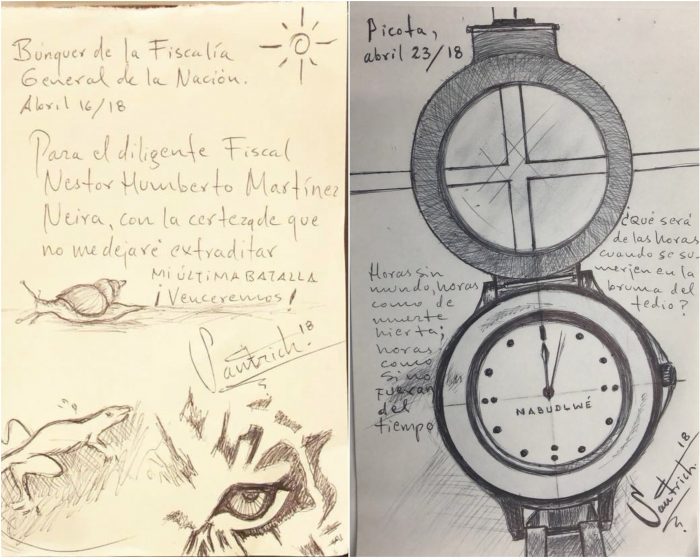 Búnquer de la Fiscalía
General de la Nación.
Abril 16/18
Para el diligente Fiscal
Nestor Humberto Martínez
Neira, con la certeza de que
no me dejaré extraditar
MI ÚLTIMA BATALLA
¡Venceremos!
Santrich. 18
Picota,
abril 23/18
¿Qué será
de las horas
cuando se su-
merjen en la
bruma del
tedio?
Horas sin
mundo, horas
como de
muerte
hierta;
horas
como
si no
fueran
del
tiempo
NABUDLWÉ
Santrich. 18